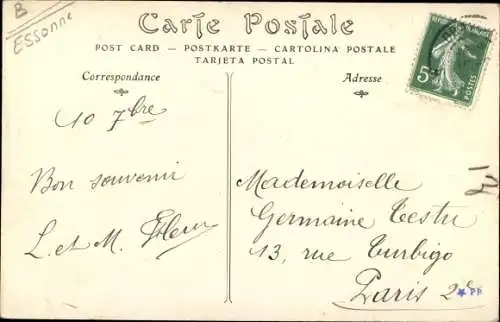 B
Essonne
Carte Postale
POST CARD — POSTKARTE — CARTOLINA POSTALE
TARJETA POSTAL
Correspondance
Adresse
5c
POSTES
10 7bre
Bon souvenir
L. et M.
Mademoiselle
Germaine Testu
13, rue Turbigo
Paris 2e
PP